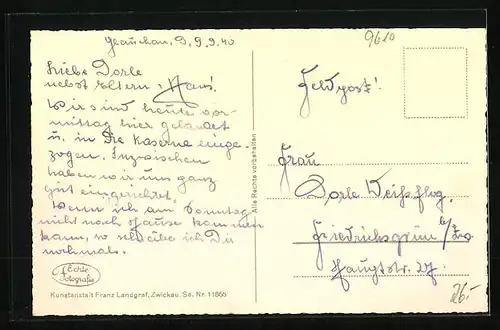 Glauchau, D. 9.9.40
Liebe Dorle
nebst Eltern u. Hans!
Wir sind heute vor-
mittag hier gelandet
u. in die Kaserne einge-
zogen. Inzwischen
haben wir uns ganz
gut eingerichtet.
Wenn ich am Sonntag
nicht nach Hause kommen
kann, so schreibe ich Dir
nochmals.
Echte
Fotografie
Kunstanstalt Franz Landgraf, Zwickau, Sa. Nr. 11868
Alle Rechte vorbehalten
9610
Feldpost!
Frau
Dorle Weißflog.
Friedrichsgrün b/Zw.
Hauptstr. 27.
26.-